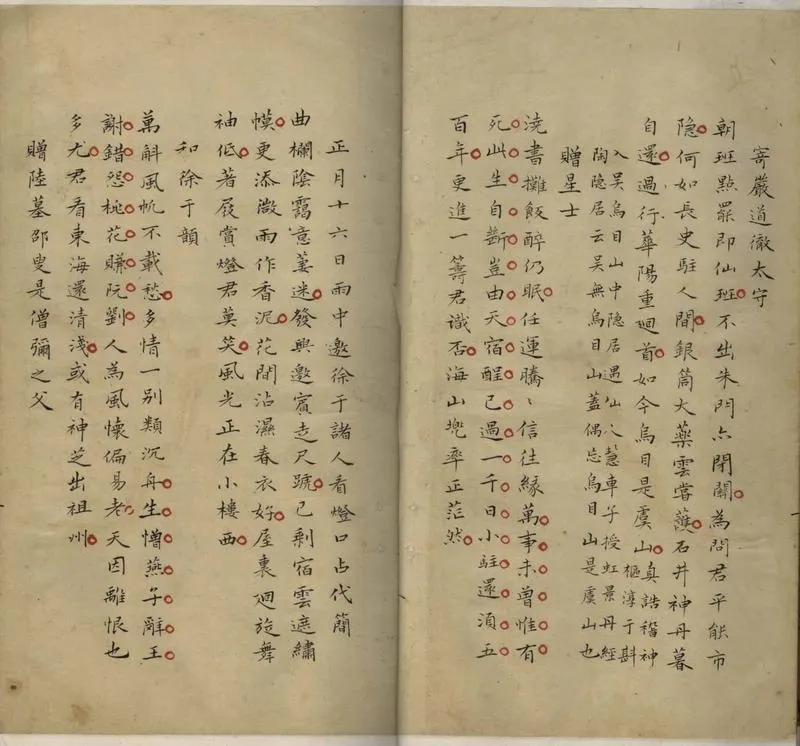 寄嚴道徹太守
朝班點罷即仙班不出朱門亦閉關為問君平能市
隐何如長史駐人間銀筒大藥雲嘗護石井神丹暮
自還過行華陽重廻首如今烏目是虞山
真誥稽神
樞淳于斟
入吳烏目山中隐居遇仙人慧車子授虹景丹經
陶隐居云吳無烏目山蓋偶忘烏目山是虞山也
贈星士
澆書攤飯醉仍眠任運騰〻信往緣萬事未曾惟有
死此生自斷豈由天宿酲已過一千日小駐還須五
百年更進一籌君識否海山兜率正茫然
正月十六日雨中邀徐于諸人看燈口占代簡
曲欄陰靄意萋迷發興邀賓走尺蹏已剩宿雲遮繡
幙更添微雨作香泥花間沾濕春衣好屋裏廻旋舞
袖低著屐賞燈君莫笑風光正在小樓西
和徐于韻
萬斛風帆不載愁多情一別類沉舟生憎燕子辭王
謝錯怨桃花賺阮劉人為風懷偏易老天因離恨也
多尤君看東海還清淺或有神芝出祖州
贈陸墓邵叟是僧彌之父